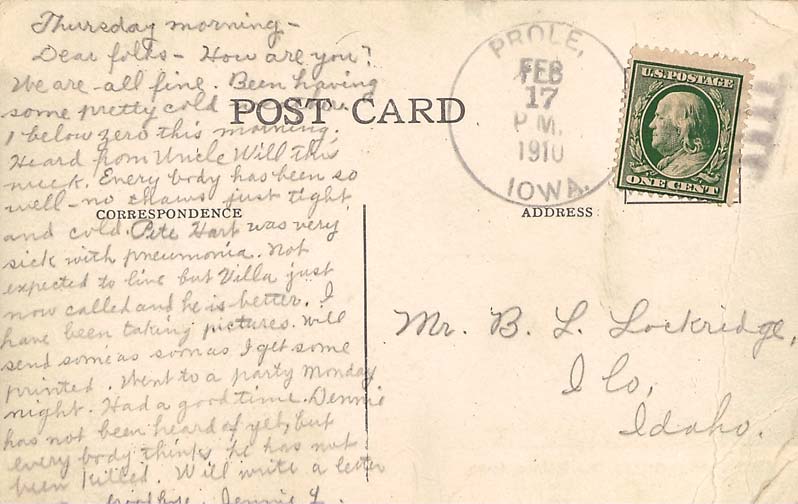 Thursday morning -
Dear folks - How are you?
We are all fine. Been having
some pretty cold
1 below zero this morning.
Heard from Uncle Will this
week. Every body has been so
well - no thaws just tight
and cold. Pete Hart was very
sick with pneumonia. Not
expected to live but Villa just
now called and he is better. I
have been taking pictures. Will
send some as soon as I get some
printed. Went to a party Monday
night. Had a good time. Dennie
has not been heard of yet, but
every body thinks he has not
been killed. Will write a letter
Goodbye. Jennie L.
POST CARD
CORRESPONDENCE
ADDRESS
PROLE,
FEB
17
P.M.
1910
IOWA.
U.S. POSTAGE
ONE CENT
Mr. B. L. Lockridge,
Ilo,
Idaho.